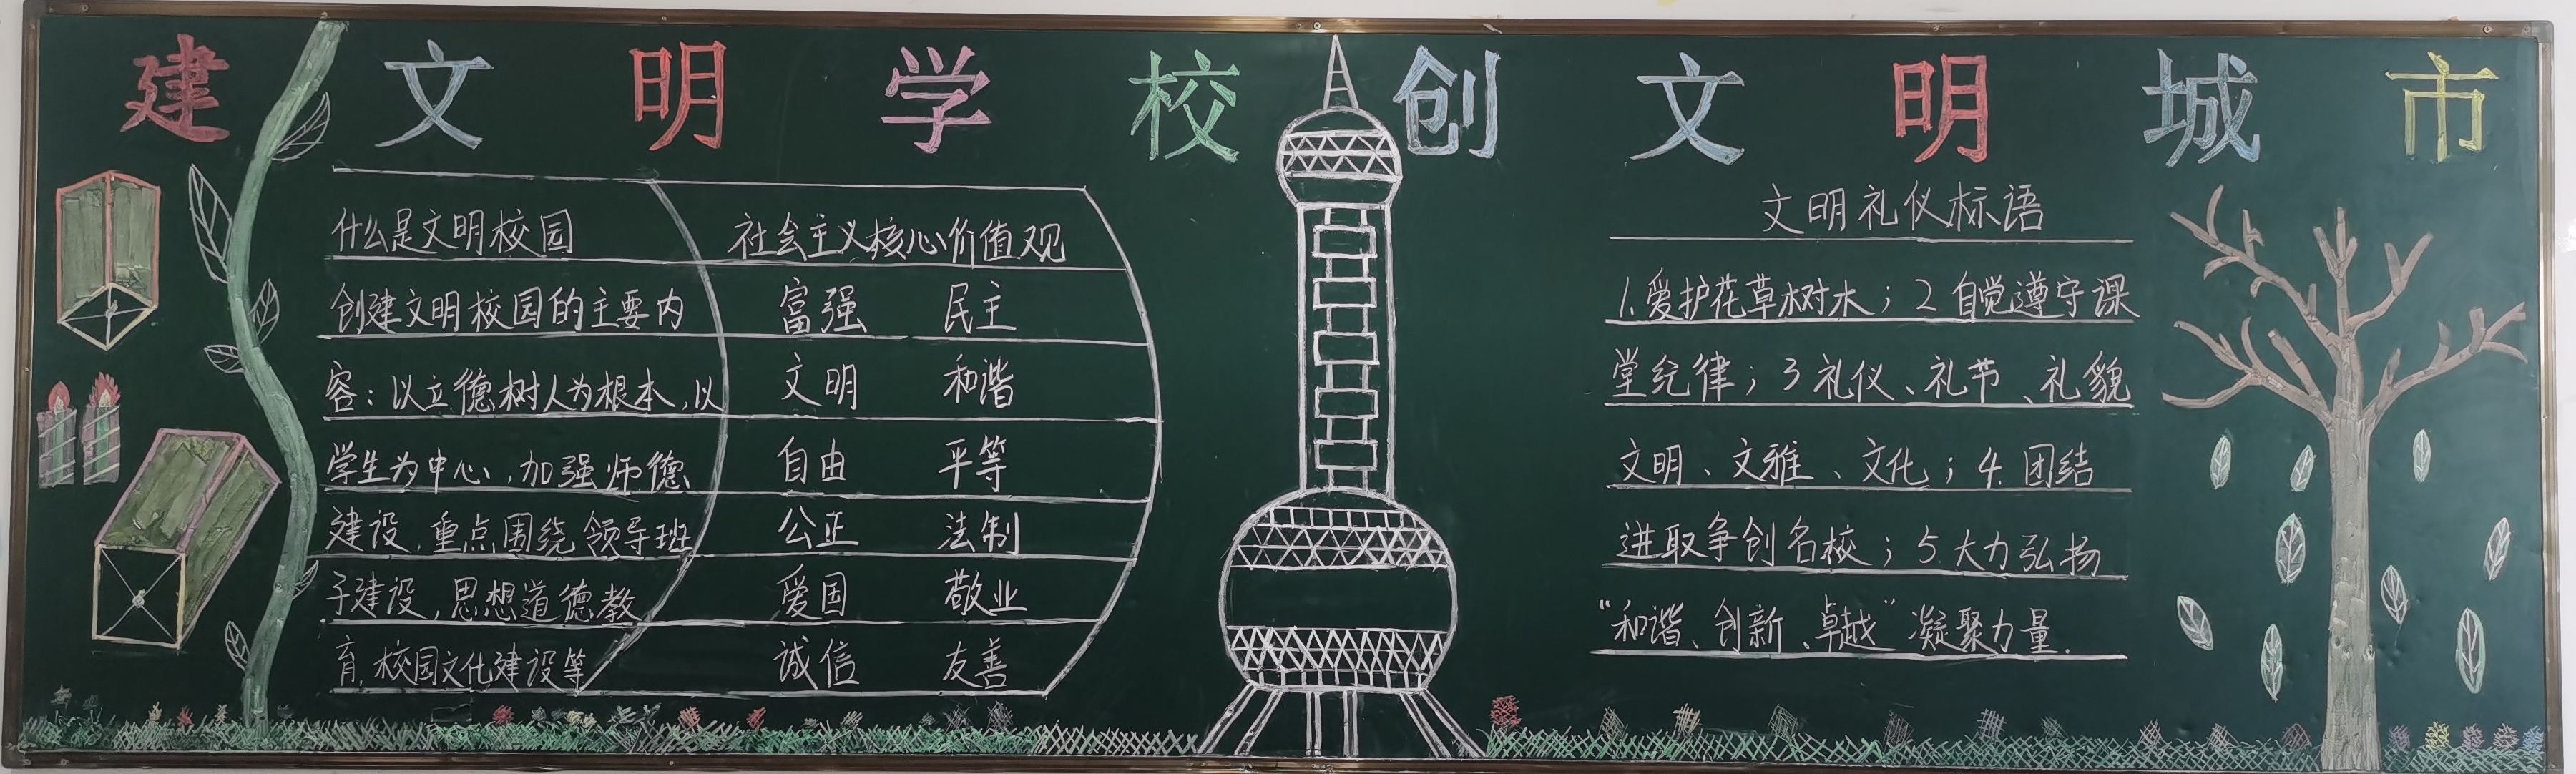 建文明学校创文明城市
什么是文明校园
创建文明校园的主要内
容：以立德树人为根本，以
学生为中心，加强师德
建设，重点围绕领导班
子建设，思想道德教
育，校园文化建设等
社会主义核心价值观
富强 民主
文明 和谐
自由 平等
公正 法制
爱国 敬业
诚信 友善
文明礼仪标语
1.爱护花草树木；2自觉遵守课
堂纪律；3礼仪、礼节、礼貌
文明、文雅、文化；4.团结
进取争创名校；5.大力弘扬
“和谐、创新、卓越”凝聚力量.